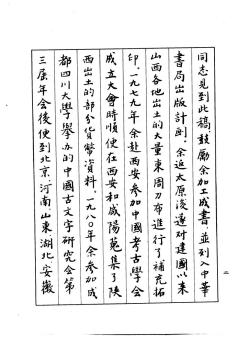 同志見到此稿鼓勵余加工成書，並列入中華
書局出版計劃。余返太原後遂对建國以來
山西各地出土的大量東周刀布進行了補充拓
印。一九七九年余赴西安參加中國考古學會
成立大會時順便在西安和咸陽蒐集了陝
西出土的部分貨幣資料。一九八〇年余參加成
都四川大學舉办的中國古文字研究会第
三屆年会後便到北京、河南、山東、湖北、安徽
二